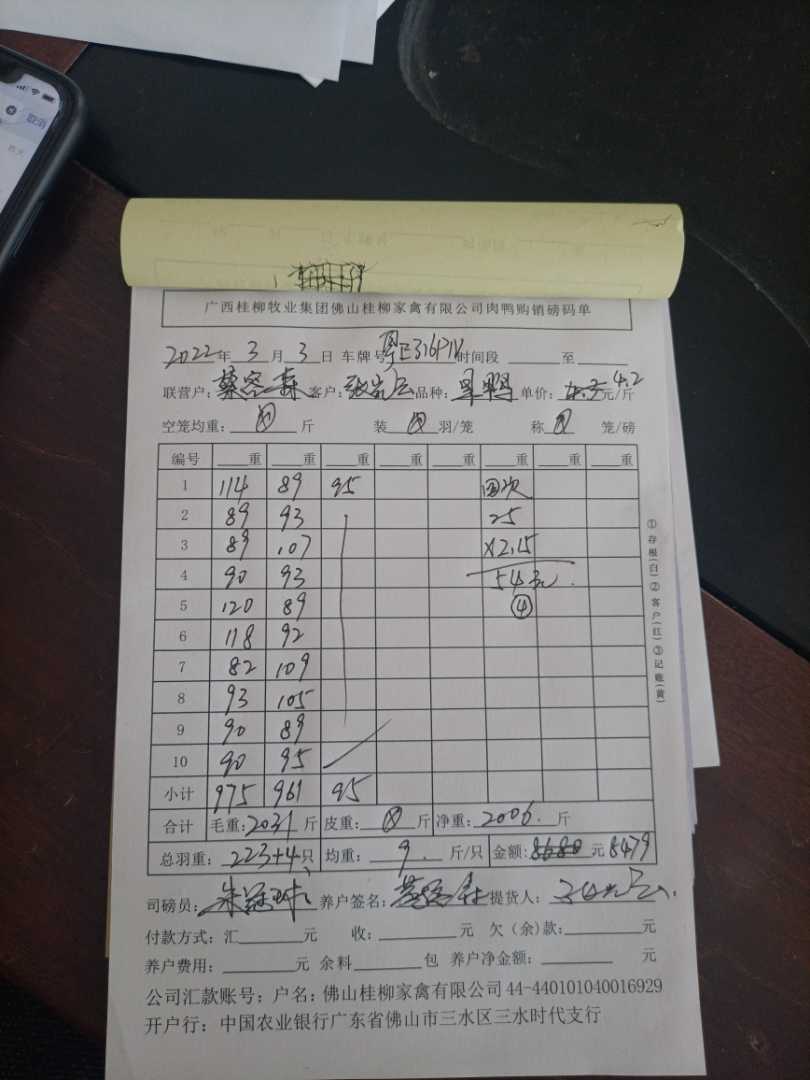 取消
广西桂柳牧业集团佛山桂柳家禽有限公司肉鸭购销磅码单
2022年 3月 3日 车牌号 粤E316P1V 时间段 至
联营户: 客户: 品种: 旱鸭 单价: 4.2元/斤
空笼均重: 斤 装 羽/笼 称 笼/磅
编号 重 重 重 重 重 重 重 重
1 114 89 95 四次
2 89 93 25
3 89 107 ×2.15
4 90 93 54元
5 120 89 ④
6 118 92
7 82 109
8 93 105
9 90 89
10 90 95
小计 975 961 95
合计 毛重:2031斤 皮重: 斤 净重:2006.斤
总羽重: 223+4只 均重: 9. 斤/只 金额: 8680 元 8479
司磅员: 养户签名: 提货人:
付款方式: 汇 元 收: 元 欠(余)款: 元
养户费用: 元 余料 包 养户净金额: 元
公司汇款账号: 户名: 佛山桂柳家禽有限公司 44-440101040016929
开户行: 中国农业银行广东省佛山市三水区三水时代支行
①存根(白)②客户(红)③记账(黄)